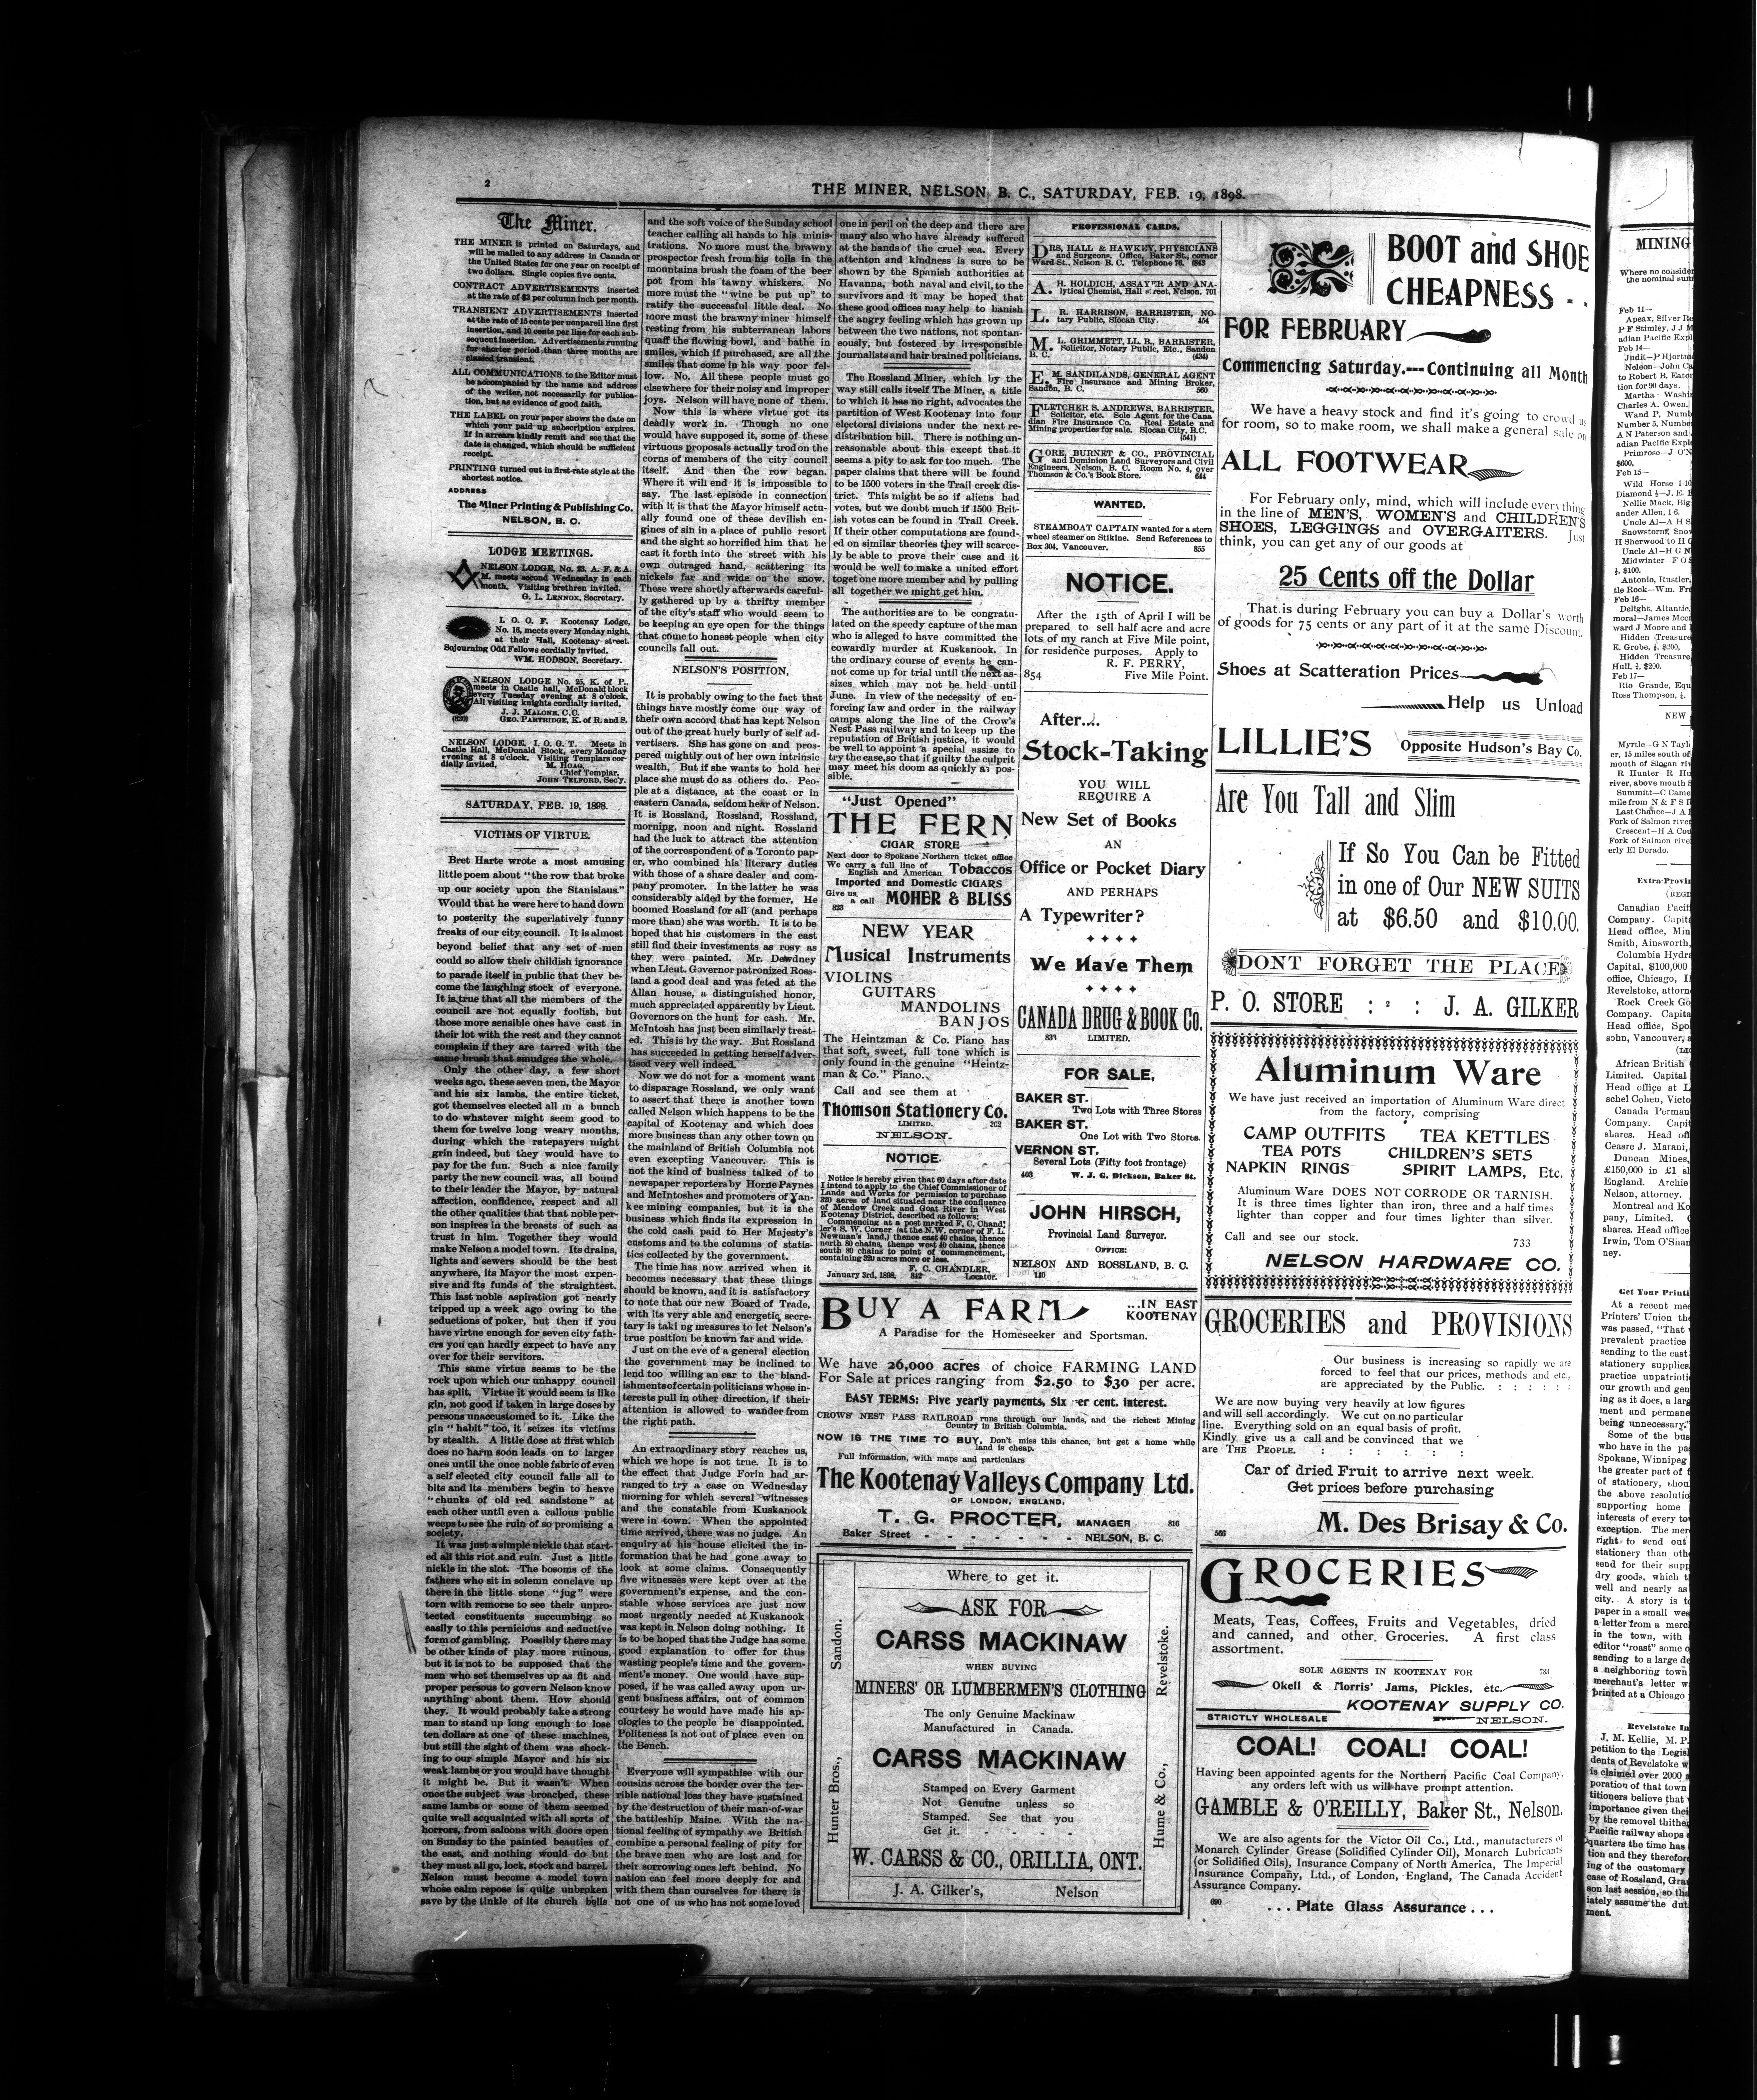 2
THE MINER, NELSON, B. C., SATURDAY, FEB. 19, 1898.
The Miner.
THE MINER is printed on Saturdays, and
will be mailed to any address in Canada or
the United States for one year on receipt of
two dollars. Single copies five cents.
CONTRACT ADVERTISEMENTS inserted
at the rate of $3 per column inch per month.
TRANSIENT ADVERTISEMENTS inserted
at the rate of 15 cents per nonpareil line first
insertion, and 10 cents per line for each sub-
sequent insertion. Advertisements running
for shorter period than three months are
classed transient.
ALL COMMUNICATIONS to the Editor must
be accompanied by the name and address
of the writer, not necessarily for publica-
tion, but as evidence of good faith.
THE LABEL on your paper shows the date on
which your paid up subscription expires.
If in arrears kindly remit and see that the
date is changed, which should be sufficient
receipt.
PRINTING turned out in first-rate style at the
shortest notice.
ADDRESS
The Miner Printing & Publishing Co.
NELSON, B. C.
LODGE MEETINGS.
NELSON LODGE, No. 23, A. F. & A.
M. meets second Wednesday in each
month. Visiting brethren invited.
G. L. LENNOX, Secretary.
I. O. O. F. Kootenay Lodge,
No. 16, meets every Monday night,
at their Hall, Kootenay street.
Sojourning Odd Fellows cordially invited.
WM. HODSON, Secretary.
NELSON LODGE No. 25, K. of P.,
meets in Castle hall, McDonald block
every Tuesday evening at 8 o'clock.
All visiting knights cordially invited.
J. J. MALONE, C.C.
(820) GEO. PARTRIDGE, K. of R. and S.
NELSON LODGE, I. O. G. T. Meets in
Castle Hall, McDonald Block, every Monday
evening at 8 o'clock. Visiting Templars cor-
dially invited. M. HOAG,
Chief Templar,
JOHN TELFORD, Sec'y.
SATURDAY, FEB. 19, 1898.
VICTIMS OF VIRTUE.
Bret Harte wrote a most amusing
little poem about "the row that broke
up our society upon the Stanislaus."
Would that he were here to hand down
to posterity the superlatively funny
freaks of our city council. It is almost
beyond belief that any set of men
could so allow their childish ignorance
to parade itself in public that they be-
come the laughing stock of everyone.
It is true that all the members of the
council are not equally foolish, but
those more sensible ones have cast in
their lot with the rest and they cannot
complain if they are tarred with the
same brush that smudges the whole.
Only the other day, a few short
weeks ago, these seven men, the Mayor
and his six lambs, the entire ticket,
got themselves elected all in a bunch
to do whatever might seem good to
them for twelve long weary months,
during which the ratepayers might
grin indeed, but they would have to
pay for the fun. Such a nice family
party the new council was, all bound
to their leader the Mayor, by natural
affection, confidence, respect and all
the other qualities that that noble per-
son inspires in the breasts of such as
trust in him. Together they would
make Nelson a model town. Its drains,
lights and sewers should be the best
anywhere, its Mayor the most expen-
sive and its funds of the straightest.
This last noble aspiration got nearly
tripped up a week ago owing to the
seductions of poker, but then if you
have virtue enough for seven city fath-
ers you can hardly expect to have any
over for their servitors.
This same virtue seems to be the
rock upon which our unhappy council
has split. Virtue it would seem is like
gin, not good if taken in large doses by
persons unaccustomed to it. Like the
gin "habit" too, it seizes its victims
by stealth. A little dose at first which
does no harm soon leads on to larger
ones until the once noble fabric of even
a self elected city council falls all to
bits and its members begin to heave
"chunks of old red sandstone" at
each other until even a callous public
weeps to see the ruin of so promising a
society.
It was just a simple nickle that start-
ed all this riot and ruin. Just a little
nickle in the slot. The bosoms of the
fathers who sit in solemn conclave up
there in the little stone "jug" were
torn with remorse to see their unpro-
tected constituents succumbing so
easily to this pernicious and seductive
form of gambling. Possibly there may
be other kinds of play more ruinous,
but it is not to be supposed that the
men who set themselves up as fit and
proper persons to govern Nelson know
anything about them. How should
they. It would probably take a strong
man to stand up long enough to lose
ten dollars at one of these machines,
but still the sight of them was shock-
ing to our simple Mayor and his six
weak lambs or you would have thought
it might be. But it wasn't. When
once the subject was broached, these
same lambs or some of them seemed
quite well acquainted with all sorts of
horrors, from saloons with doors open
on Sunday to the painted beauties of
the east, and nothing would do but
they must all go, lock, stock and barrel.
Nelson must become a model town
whose calm repose is quite unbroken
save by the tinkle of its church bells
and the soft voice of the Sunday school
teacher calling all hands to his minis-
trations. No more must the brawny
prospector fresh from his toils in the
mountains brush the foam of the beer
pot from his tawny whiskers. No
more must the "wine be put up" to
ratify the successful little deal. No
more must the brawny miner himself
resting from his subterranean labors
quaff the flowing bowl, and bathe in
smiles, which if purchased, are all the
smiles that come in his way poor fel-
low. No. All these people must go
elsewhere for their noisy and improper
joys. Nelson will have none of them.
Now this is where virtue got its
deadly work in. Though no one
would have supposed it, some of these
virtuous proposals actually trod on the
corns of members of the city council
itself. And then the row began.
Where it will end it is impossible to
say. The last episode in connection
with it is that the Mayor himself actu-
ally found one of these devilish en-
gines of sin in a place of public resort
and the sight so horrified him that he
cast it forth into the street with his
own outraged hand, scattering its
nickels far and wide on the snow.
These were shortly afterwards careful-
ly gathered up by a thrifty member
of the city's staff who would seem to
be keeping an eye open for the things
that come to honest people when city
councils fall out.
NELSON'S POSITION,
It is probably owing to the fact that
things have mostly come our way of
their own accord that has kept Nelson
out of the great hurly burly of self ad-
vertisers. She has gone on and pros-
pered mightily out of her own intrinsic
wealth, But if she wants to hold her
place she must do as others do. Peo-
ple at a distance, at the coast or in
eastern Canada, seldom hear of Nelson.
It is Rossland, Rossland, Rossland,
morning, noon and night. Rossland
had the luck to attract the attention
of the correspondent of a Toronto pap-
er, who combined his literary duties
with those of a share dealer and com-
pany promoter. In the latter he was
considerably aided by the former, He
boomed Rossland for all (and perhaps
more than) she was worth. It is to be
hoped that his customers in the east
still find their investments as rosy as
they were painted. Mr. Dewdney
when Lieut. Governor patronized Ross-
land a good deal and was feted at the
Allan house, a distinguished honor,
much appreciated apparently by Lieut.
Governors on the hunt for cash. Mr.
McIntosh has just been similarly treat-
ed. This is by the way. But Rossland
has succeeded in getting herself adver-
tised very well indeed.
Now we do not for a moment want
to disparage Rossland, we only want
to assert that there is another town
called Nelson which happens to be the
capital of Kootenay and which does
more business than any other town on
the mainland of British Columbia not
even excepting Vancouver. This is
not the kind of business talked of to
newspaper reporters by Horne Paynes
and McIntoshes and promoters of Yan-
kee mining companies, but it is the
business which finds its expression in
the cold cash paid to Her Majesty's
customs and to the columns of statis-
tics collected by the government.
The time has now arrived when it
becomes necessary that these things
should be known, and it is satisfactory
to note that our new Board of Trade,
with its very able and energetic secre-
tary is taking measures to let Nelson's
true position be known far and wide.
Just on the eve of a general election
the government may be inclined to
lend too willing an ear to the bland-
ishments of certain politicians whose in-
terests pull in other direction, if their
attention is allowed to wander from
the right path.
An extraordinary story reaches us,
which we hope is not true. It is to
the effect that Judge Forin had ar-
ranged to try a case on Wednesday
morning for which several witnesses
and the constable from Kuskanook
were in town. When the appointed
time arrived, there was no judge. An
enquiry at his house elicited the in-
formation that he had gone away to
look at some claims. Consequently
five witnesses were kept over at the
government's expense, and the con-
stable whose services are just now
most urgently needed at Kuskanook
was kept in Nelson doing nothing. It
is to be hoped that the Judge has some
good explanation to offer for thus
wasting people's time and the govern-
ment's money. One would have sup-
posed, if he was called away upon ur-
gent business affairs, out of common
courtesy he would have made his ap-
ologies to the people he disappointed.
Politeness is not out of place even on
the Bench.
Everyone will sympathise with our
cousins across the border over the ter-
rible national loss they have sustained
by the destruction of their man-of-war
the battleship Maine. With the na-
tional feeling of sympathy we British
combine a personal feeling of pity for
the brave men who are lost and for
their sorrowing ones left behind. No
nation can feel more deeply for and
with them than ourselves for there is
not one of us who has not some loved
one in peril on the deep and there are
many also who have already suffered
at the hands of the cruel sea. Every
attenton and kindness is sure to be
shown by the Spanish authorities at
Havanna, both naval and civil, to the
survivors and it may be hoped that
these good offices may help to banish
the angry feeling which has grown up
between the two nations, not spontan-
eously, but fostered by irresponsible
journalists and hair brained politicians.
The Rossland Miner, which by the
way still calls itself The Miner, a title
to which it has no right, advocates the
partition of West Kootenay into four
electoral divisions under the next re-
distribution bill. There is nothing un-
reasonable about this except that it
seems a pity to ask for too much. The
paper claims that there will be found
to be 1500 voters in the Trail creek dis-
trict. This might be so if aliens had
votes, but we doubt much if 1500 Brit-
ish votes can be found in Trail Creek.
If their other computations are found-
ed on similar theories they will scarce-
ly be able to prove their case and it
would be well to make a united effort
toget one more member and by pulling
all together we might get him.
The authorities are to be congratu-
lated on the speedy capture of the man
who is alleged to have committed the
cowardly murder at Kuskanook. In
the ordinary course of events he can-
not come up for trial until the next as-
sizes which may not be held until
June. In view of the necessity of en-
forcing law and order in the railway
camps along the line of the Crow's
Nest Pass railway and to keep up the
reputation of British justice, it would
be well to appoint a special assize to
try the case, so that if guilty the culprit
may meet his doom as quickly as pos-
sible.
"Just Opened"
THE FERN
CIGAR STORE
Next door to Spokane Northern ticket office
We carry a full line of
English and American Tobaccos
Imported and Domestic CIGARS
Give us
a call MOHER & BLISS
823
NEW YEAR
Musical Instruments
VIOLINS
GUITARS
MANDOLINS
BANJOS
The Heintzman & Co. Piano has
that soft, sweet, full tone which is
only found in the genuine "Heintz-
man & Co." Piano.
Call and see them at
Thomson Stationery Co.
LIMITED.
NELSON.
NOTICE.
Notice is hereby given that 60 days after date
I intend to apply to the Chief Commissioner of
Lands and Works for permission to purchase
320 acres of land situated near the confluence
of Meadow Creek and Goat River in West
Kootenay District, described as follows:
Commencing at a post marked F. C. Chand-
ler's S. W. Corner (at the N.W. corner of F. L.
Newman's land,) thence east 40 chains, thence
north 80 chains, thence west 40 chains, thence
south 80 chains to point of commencement,
containing 320 acres more or less.
F. C. CHANDLER,
January 3rd, 1898. 842 Locator.
PROFESSIONAL CARDS.
DRS, HALL & HAWKEY, PHYSICIANS
and Surgeons. Office, Baker St., corner
Ward St.. Nelson B. C. Telephone 76. (643
A. H. HOLDICH, ASSAYER AND ANA-
lytical Chemist, Hall street, Nelson. 701
L. R. HARRISON, BARRISTER, NO-
tary Public, Slocan City. 454
M. L. GRIMMETT, LL. B., BARRISTER,
Solicitor, Notary Public, Etc., Sandon
B. C. (434)
E. M. SANDILANDS, GENERAL AGENT
Fire Insurance and Mining Broker,
Sandon, B. C. 560
FLETCHER S. ANDREWS, BARRISTER,
Solicitor, etc. Sole Agent for the Cana
dian Fire Insurance Co. Real Estate and
Mining properties for sale. Slocan City, B.C.
(541)
GORE, BURNET & CO., PROVINCIAL
and Dominion Land Surveyors and Civil
Engineers, Nelson, B. C. Room No. 4, over
Thomson & Co.'s Book Store. 644
WANTED.
STEAMBOAT CAPTAIN wanted for a stern
wheel steamer on Stikine. Send References to
Box 304, Vancouver. 855
NOTICE.
After the 15th of April I will be
prepared to sell half acre and acre
lots of my ranch at Five Mile point,
for residence purposes. Apply to
R. F. PERRY,
854 Five Mile Point.
After....
Stock=Taking
YOU WILL
REQUIRE A
New Set of Books
AN
Office or Pocket Diary
AND PERHAPS
A Typewriter?
We Have Them
CANADA DRUG & BOOK Co.
LIMITED.
FOR SALE,
BAKER ST.
Two Lots with Three Stores
BAKER ST.
One Lot with Two Stores.
VERNON ST.
Several Lots (Fifty foot frontage)
403 W. J. G. Dickson, Baker St.
JOHN HIRSCH,
Provincial Land Surveyor.
OFFICE:
NELSON AND ROSSLAND, B. C.
140
BUY A FARM
...IN EAST
KOOTENAY
A Paradise for the Homeseeker and Sportsman.
We have 26,000 acres of choice FARMING LAND
For Sale at prices ranging from $2.50 to $30 per acre.
EASY TERMS: Five yearly payments, Six per cent. interest.
CROWS' NEST PASS RAILROAD runs through our lands, and the richest Mining
Country in British Columbia.
NOW IS THE TIME TO BUY, Don't miss this chance, but get a home while
land is cheap.
Full information, with maps and particulars
The Kootenay Valleys Company Ltd.
OF LONDON, ENGLAND.
T. G. PROCTER, MANAGER 816
Baker Street - - - - - - - NELSON, B. C.
Where to get it.
ASK FOR
CARSS MACKINAW
WHEN BUYING
MINERS' OR LUMBERMEN'S CLOTHING
The only Genuine Mackinaw
Manufactured in Canada.
CARSS MACKINAW
Stamped on Every Garment
Not Genuine unless so
Stamped. See that you
Get it. - - - -
W. CARSS & CO., ORILLIA, ONT.
J. A. Gilker's, Nelson
Hunter Bros., Sandon.
Hume & Co., Revelstoke.
BOOT and SHOE
CHEAPNESS - .
FOR FEBRUARY
Commencing Saturday.---Continuing all Month
We have a heavy stock and find it's going to crowd us
for room, so to make room, we shall make a general sale on
ALL FOOTWEAR
For February only, mind, which will include everything
in the line of MEN'S, WOMEN'S and CHILDREN'S
SHOES, LEGGINGS and OVERGAITERS. Just
think, you can get any of our goods at
25 Cents off the Dollar
That is during February you can buy a Dollar's worth
of goods for 75 cents or any part of it at the same Discount.
Shoes at Scatteration Prices
Help us Unload
LILLIE'S Opposite Hudson's Bay Co.
Are You Tall and Slim
If So You Can be Fitted
in one of Our NEW SUITS
at $6.50 and $10.00.
DONT FORGET THE PLACE
P. O. STORE : : J. A. GILKER
Aluminum Ware
We have just received an importation of Aluminum Ware direct
from the factory, comprising
CAMP OUTFITS TEA KETTLES
TEA POTS CHILDREN'S SETS
NAPKIN RINGS SPIRIT LAMPS, Etc.
Aluminum Ware DOES NOT CORRODE OR TARNISH.
It is three times lighter than iron, three and a half times
lighter than copper and four times lighter than silver.
Call and see our stock. 733
NELSON HARDWARE CO.
GROCERIES and PROVISIONS
Our business is increasing so rapidly we are
forced to feel that our prices, methods and etc.,
are appreciated by the Public. : : : : : :
We are now buying very heavily at low figures
and will sell accordingly. We cut on no particular
line. Everything sold on an equal basis of profit.
Kindly give us a call and be convinced that we
are THE PEOPLE. : : : : : :
Car of dried Fruit to arrive next week.
Get prices before purchasing
566 M. Des Brisay & Co.
GROCERIES
Meats, Teas, Coffees, Fruits and Vegetables, dried
and canned, and other Groceries. A first class
assortment.
SOLE AGENTS IN KOOTENAY FOR 783
Okell & Morris' Jams, Pickles, etc.
KOOTENAY SUPPLY CO.
STRICTLY WHOLESALE NELSON.
COAL! COAL! COAL!
Having been appointed agents for the Northern Pacific Coal Company,
any orders left with us will have prompt attention.
GAMBLE & O'REILLY, Baker St., Nelson.
We are also agents for the Victor Oil Co., Ltd., manufacturers of
Monarch Cylinder Grease (Solidified Cylinder Oil), Monarch Lubricants
(or Solidified Oils), Insurance Company of North America, The Imperial
Insurance Company, Ltd., of London, England, The Canada Accident
Assurance Company.
690 . . . Plate Glass Assurance . . .
MINING
Where no consider
the nominal sum
Feb 11—
Feb 14—
Feb 15—
Feb 16—
Feb 17—
NEW
Extra-Provin
Get Your Printi
Revelstoke In